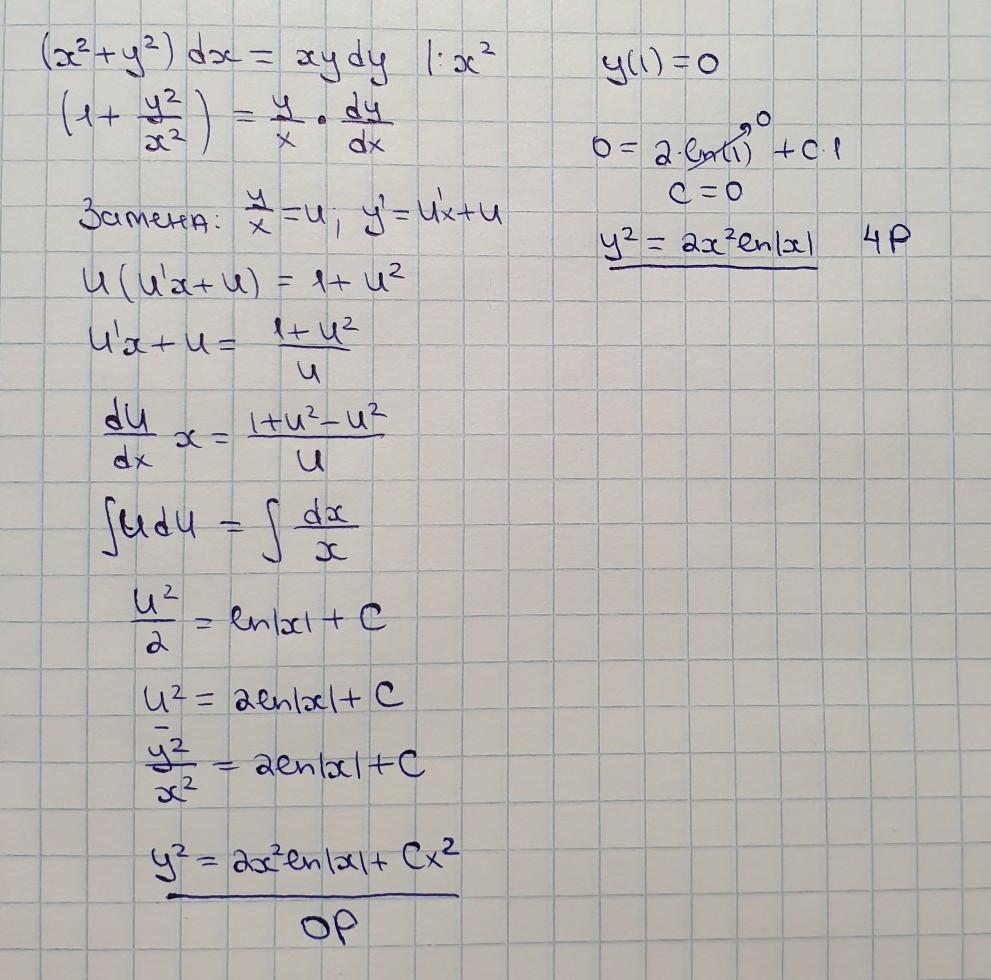 (x² + y²) dx = xy dy |: x²
(1 + y²/x²) = y/x · dy/dx
Замена: y/x = u; y' = u'x + u
u(u'x + u) = 1 + u²
u'x + u = (1 + u²)/u
du/dx x = (1 + u² - u²)/u
∫u du = ∫ dx/x
u²/2 = ln|x| + C
u² = 2ln|x| + C
y²/x² = 2ln|x| + C
y² = 2x²ln|x| + Cx²
ОР
y(1) = 0
0 = 2·ln(1) 0 + C·1
C = 0
y² = 2x²ln|x| ЧР